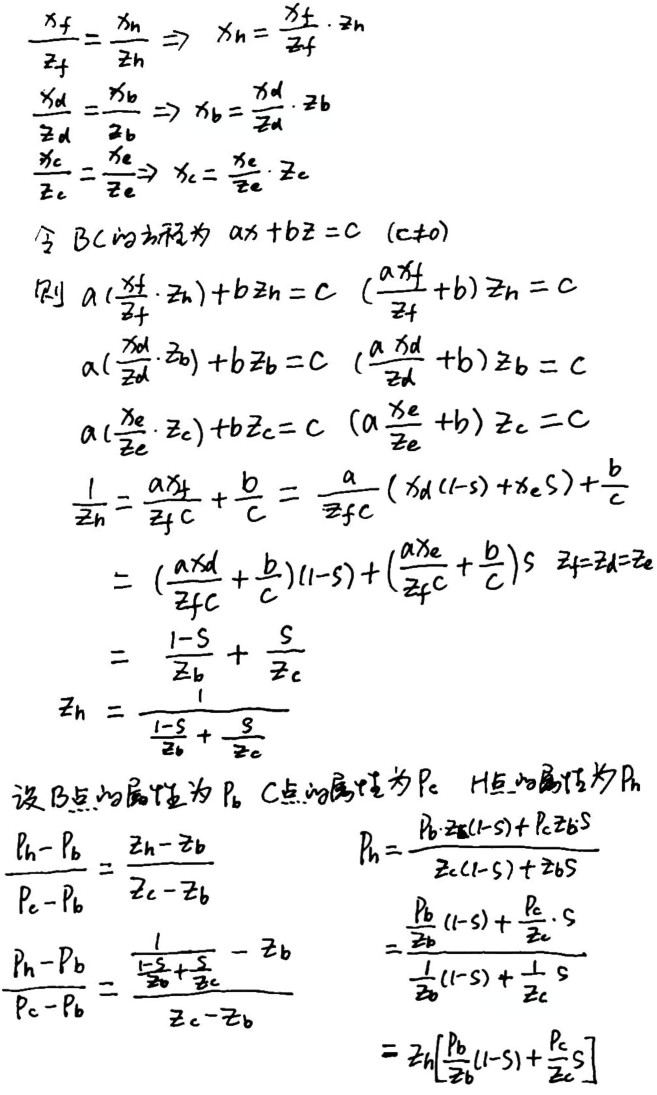 x_f/z_f = x_h/z_h ⇒ x_h = x_f/z_f · z_h
x_d/z_d = x_b/z_b ⇒ x_b = x_d/z_d · z_b
x_c/z_c = x_e/z_e ⇒ x_c = x_e/z_e · z_c
令 BC的方程为 ax+bz=c (c≠0)
则 a(x_f/z_f · z_h)+bz_h=c (ax_f/z_f + b)z_h=c
a(x_d/z_d · z_b)+bz_b=c (ax_d/z_d + b)z_b=c
a(x_e/z_e · z_c)+bz_c=c (a x_e/z_e + b)z_c=c
1/z_h = ax_f/(z_f c) + b/c = a/(z_f c) (x_d(1-s)+x_e s) + b/c
= (ax_d/(z_f c) + b/c)(1-s)+(ax_e/(z_f c) + b/c)s z_f=z_d=z_e
= (1-s)/z_b + s/z_c
z_h = 1/((1-s)/z_b + s/z_c)
设B点的属性为P_b C点的属性为P_c H点的属性为P_h
(P_h-P_b)/(P_c-P_b) = (z_h-z_b)/(z_c-z_b)
(P_h-P_b)/(P_c-P_b) = (1/((1-s)/z_b + s/z_c) - z_b)/(z_c-z_b)
P_h = (P_b·z_c(1-s)+P_c z_b·s)/(z_c(1-s)+z_b s)
= (P_b/z_b (1-s) + P_c/z_c · s)/(1/z_b (1-s) + 1/z_c s)
= z_h[P_b/z_b (1-s) + P_c/z_c s]